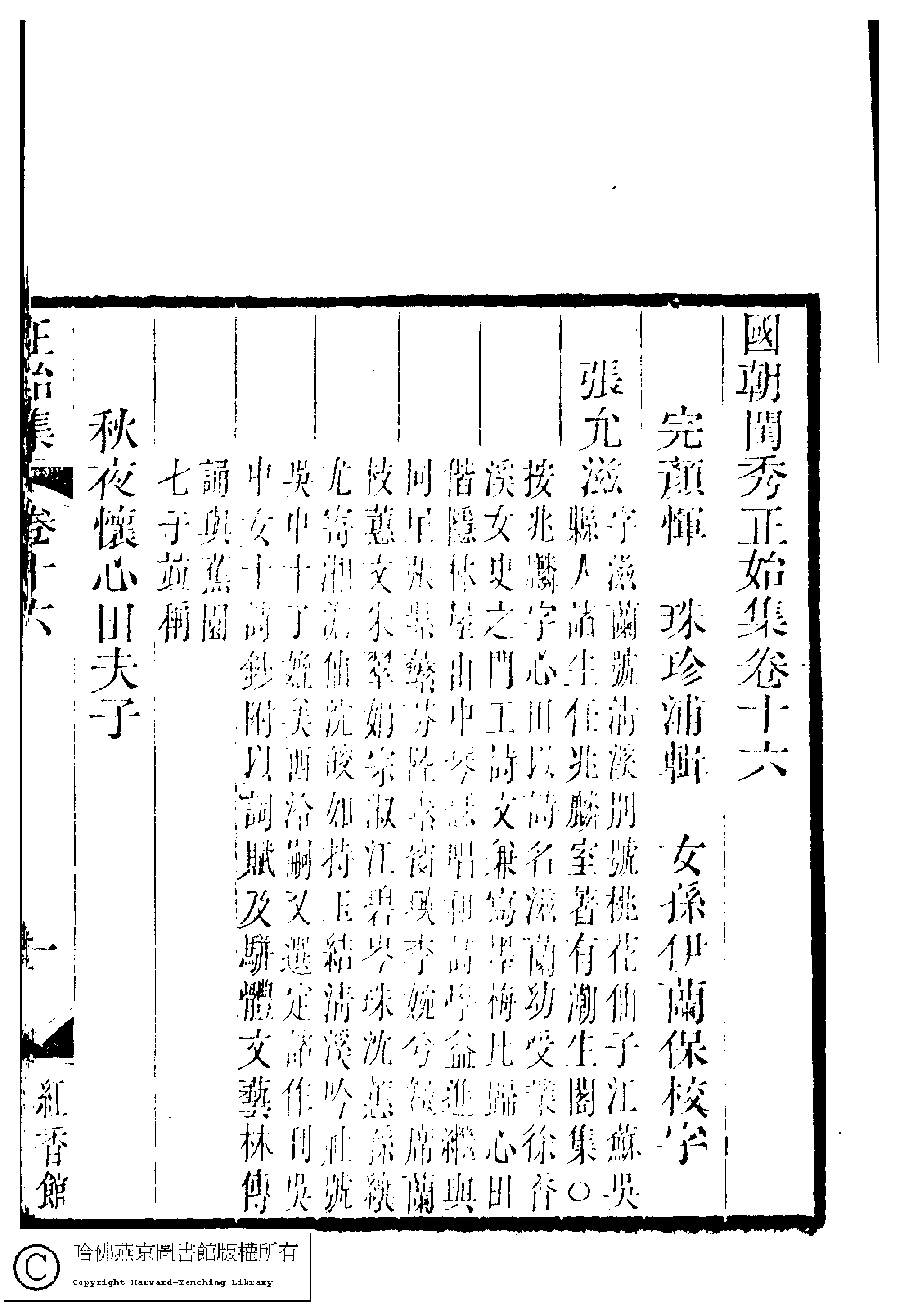 國朝閨秀正始集卷十六
完顏惲 珠珍浦輯 女孫伊蘭保校字
張允滋
字滋蘭號清溪別號桃花仙子江蘇吳
縣人諸生任兆麟室著有潮生閣集○
按兆麟字心田以詩名滋蘭幼受業徐香
溪女史之門工詩文兼寫墨梅比歸心田
偕隱林屋山中琴瑟唱和詩學益進繼與
同里張紫蘩芬陸素窗瑛李婉兮媺席蘭
枝蕙文朱翠娟宗淑江碧岑珠沈蕙孫纕
尤寄湘澹仙沈皎如持玉結清溪吟社號
吳中十子媲美西泠嗣又選定諸作刊吳
中女士詩鈔附以詞賦及駢體文藝林傳
誦與蕉園
七子並稱
秋夜懷心田夫子
正始集 卷十六
一
紅香館
哈佛燕京圖書館版權所有
Copyright Harvard-Yenching Library